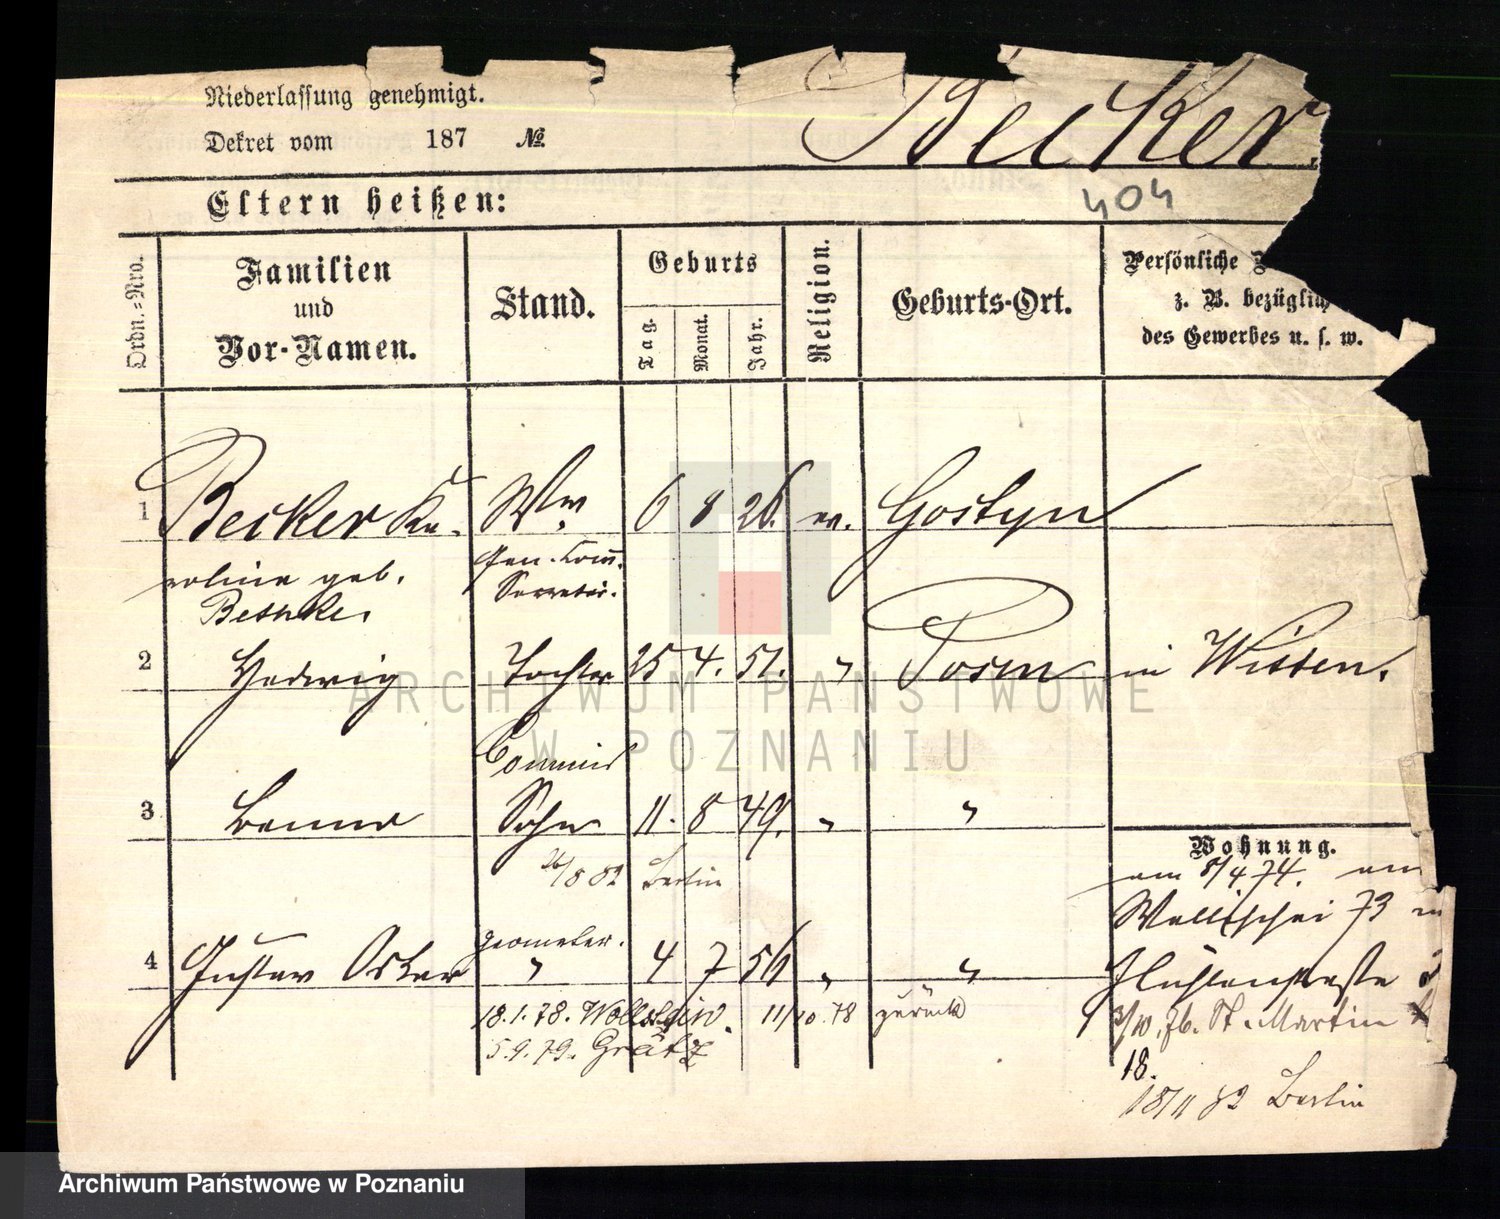 Niederlassung genehmigt.
Dekret vom 187 №
Becker.
404
Eltern heißen:
Ordn.-Nro.
Familien
und
Vor-Namen.
Stand.
Geburts
Tag.
Monat.
Jahr.
Religion.
Geburts-Ort.
Persönliche
z. B. bezüglich
des Gewerbes u. s. w.
1 Becker Ka- Ww. 6 8 26. ev. Gostyn
roline geb. Gen. Com.
Bethke. Secretär.
2 Hedwig Tochter 25 4. 51. " Posen in Witten.
Commis
3 Benno Sohn 11. 8 49. " "
26/8 82 Berlin
Wohnung.
am 8/4. 74. am
Wallischei 73
geometer.
4 Gustav Oskar " 4 7 56 " "
18.1.78. Wollstein. 11/10.78 zurück
5.9.79. Grätz
3/10.76. St. Martin
18.
18/11 82 Berlin
ARCHIWUM PAŃSTWOWE
W POZNANIU
Archiwum Państwowe w Poznaniu